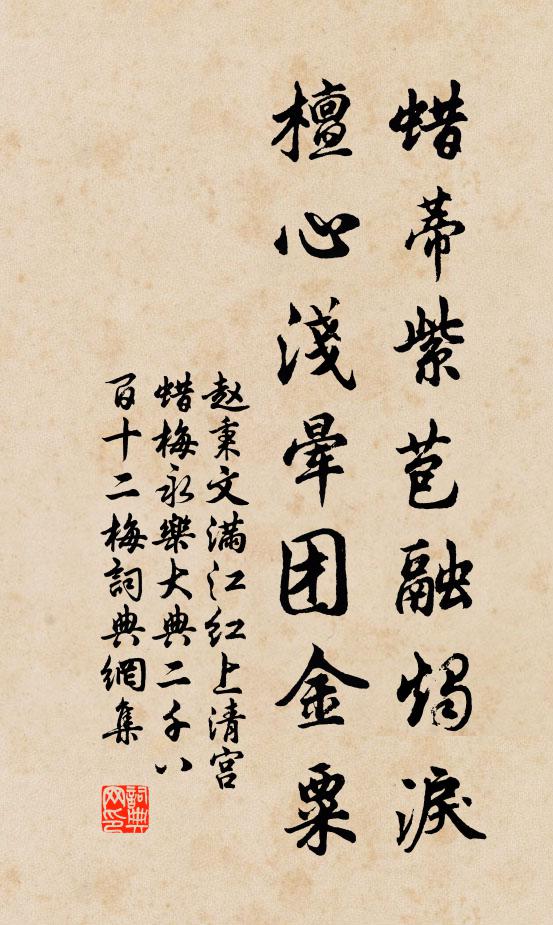 蜡蒂紫苞融燭淚
檀心淺暈团金粟
赵秉文满江红上清宫
蜡梅永樂大典二千八
百十二梅詞典網集
詞典网印